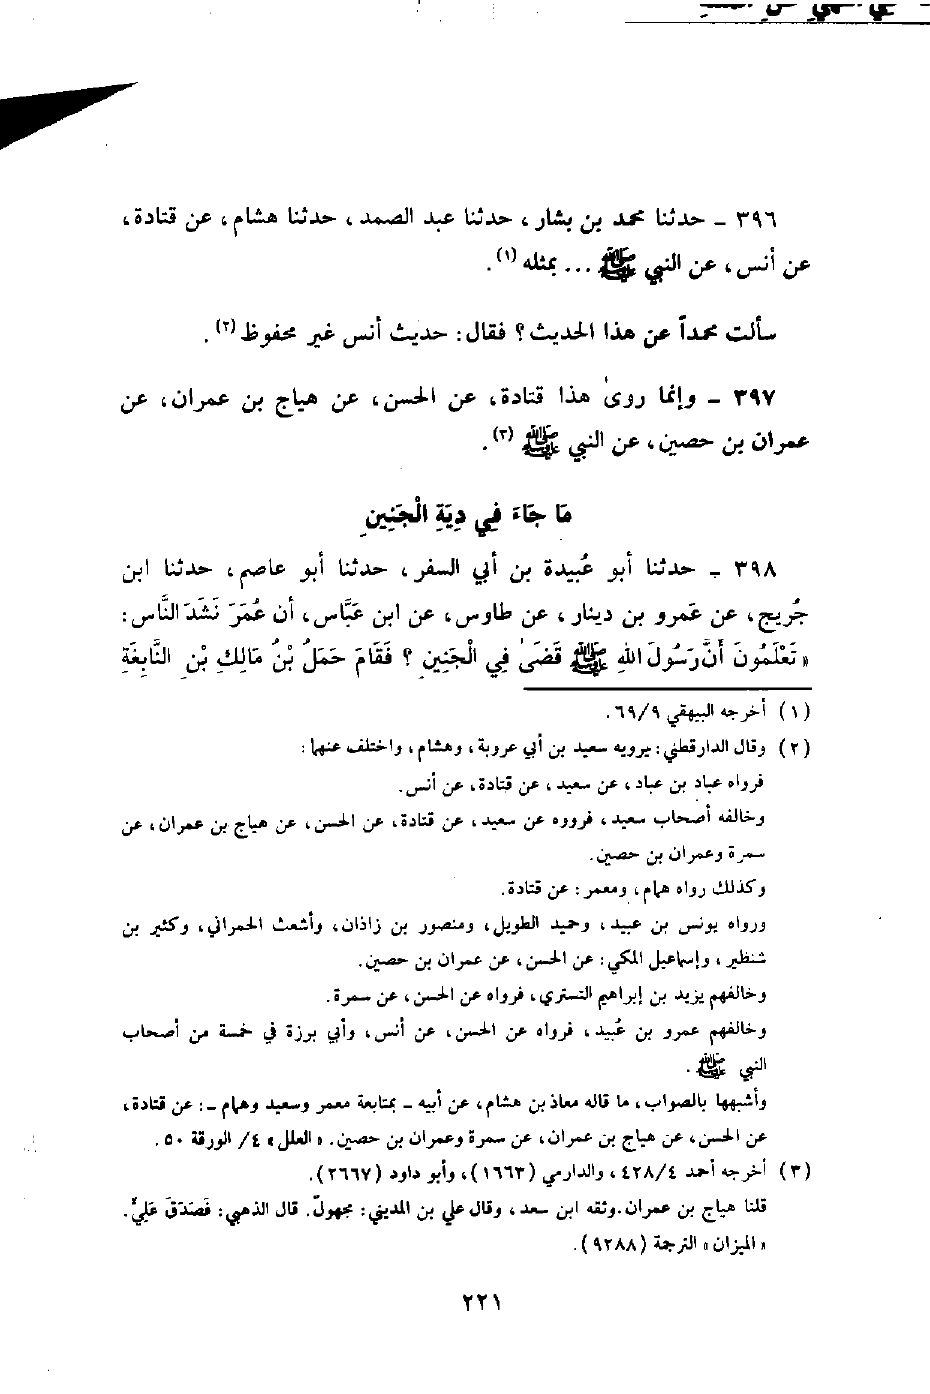 ٣٩٦ - حدثنا محمد بن بشار، حدثنا عبد الصمد، حدثنا هشام، عن قتادة،
عن أنس، عن النبي ﷺ ... بمثله (١).
سألت محمداً عن هذا الحديث؟ فقال: حديث أنس غير محفوظ (٢).
٣٩٧ - وإنما روىٰ هذا قتادة، عن الحسن، عن هياج بن عمران، عن
عمران بن حصين، عن النبي ﷺ (٣).
مَا جَاءَ فِي دِيَةِ الْجَنِينِ
٣٩٨ - حدثنا أبو عُبيدة بن أبي السفر، حدثنا أبو عاصم، حدثنا ابن
جُريج، عن عَمرو بن دينار، عن طاوس، عن ابن عَبَّاس، أن عُمَرَ نَشَدَ النَّاس:
« تَعْلَمُونَ أَنَّ رَسُولَ اللهِ ﷺ قَضَىٰ فِي الْجَنِينِ ؟ فَقَامَ حَمَلُ بْنُ مَالِكِ بْنِ النَّابِغَةِ
(١) أخرجه البيهقي ٦٩/٩.
(٢) وقال الدارقطني: يرويه سعيد بن أبي عروبة، وهشام، واختلف عنهما:
فرواه عباد بن عباد، عن سعيد، عن قتادة، عن أنس.
وخالفه أصحاب سعيد، فرووه عن سعيد، عن قتادة، عن الحسن، عن هياج بن عمران، عن
سمرة وعمران بن حصين.
وكذلك رواه همام، ومعمر: عن قتادة.
ورواه يونس بن عبيد، وحميد الطويل، ومنصور بن زاذان، وأشعث الحمراني، وكثير بن
شنظير، وإسماعيل المكي: عن الحسن، عن عمران بن حصين.
وخالفهم يزيد بن إبراهيم التستري، فرواه عن الحسن، عن سمرة.
وخالفهم عمرو بن عُبيد، فرواه عن الحسن، عن أنس، وأبي برزة في خمسة من أصحاب
النبي ﷺ.
وأشبهها بالصواب، ما قاله معاذ بن هشام، عن أبيه - بمتابعة معمر وسعيد وهمام -: عن قتادة،
عن الحسن، عن هياج بن عمران، عن سمرة وعمران بن حصين. « العلل » ٤/ الورقة ٥٠.
(٣) أخرجه أحمد ٤٢٨/٤، والدارمي (١٦٦٣)، وأبو داود (٢٦٦٧).
قلنا هياج بن عمران. وثقه ابن سعد، وقال علي بن المديني: مجهولٌ. قال الذهبي: فَصَدَقَ عَلِيٌّ.
« الميزان » الترجمة (٩٢٨٨).
٢٢١